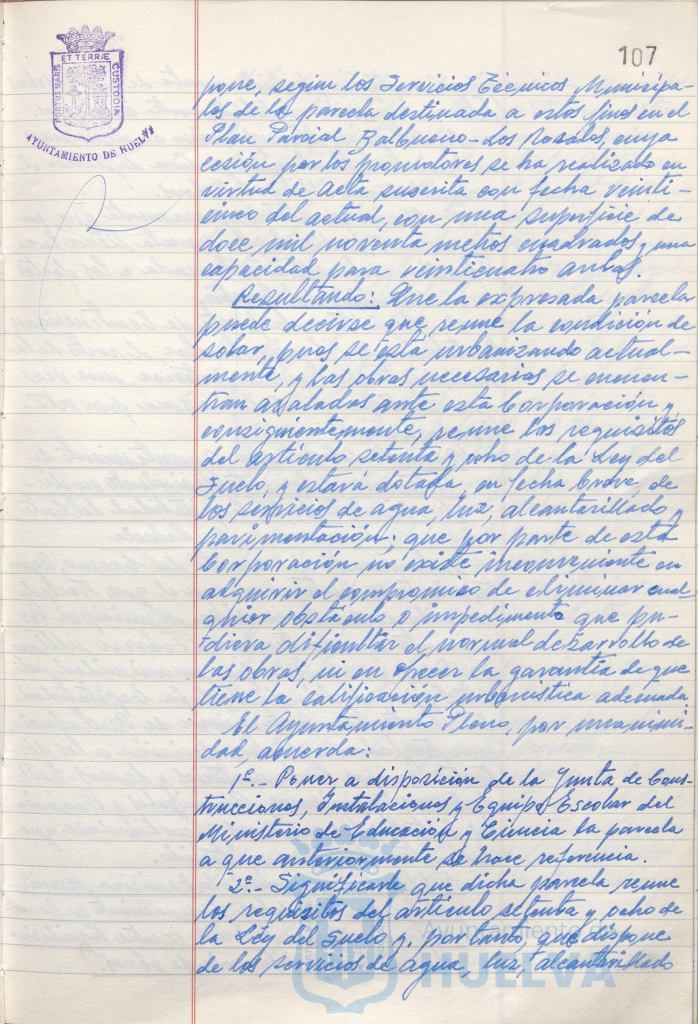 107
PORTUS MARIS ET TERRÆ CUSTODIA
AYUNTAMIENTO DE HUELVA
pone, según los Servicios Técnicos Municipa-
les de la parcela destinada a estos fines en el
Plan Parcial Balbueno-Los Rosales, cuya
cesión por los promotores se ha realizado en
virtud de acta suscrita con fecha veinti-
cinco del actual, con una superficie de
doce mil noventa metros cuadrados y una
capacidad para veinticuatro aulas.
Resultando: Que la expresada parcela
puede decirse que reune la condición de
solar, pues se está urbanizando actual-
mente, y las obras necesarias se encuen-
tran avaladas ante esta Corporación y
consiguientemente, reune los requisitos
del artículo setenta y ocho de la Ley del
Suelo, y estará dotada, en fecha breve, de
los servicios de agua, luz, alcantarillado y
pavimentación; que por parte de esta
Corporación no existe inconveniente en
adquirir el compromiso de eliminar cual-
quier obstáculo o impedimento que pu-
diera dificultar el normal desarrollo de
las obras, ni en ofrecer la garantía de que
tiene la calificación urbanística adecuada.
El Ayuntamiento Pleno, por unanimi-
dad, acuerda:
1º.- Poner a disposición de la Junta de Cons-
trucciones, Instalaciones y Equipo Escolar del
Ministerio de Educación y Ciencia la parcela
a que anteriormente se hace referencia.
2º.- Significarle que dicha parcela reune
los requisitos del artículo setenta y ocho de
la Ley del Suelo y, por tanto, que dispone
de los servicios de agua, luz, alcantarillado
Ayuntamiento de
HUELVA